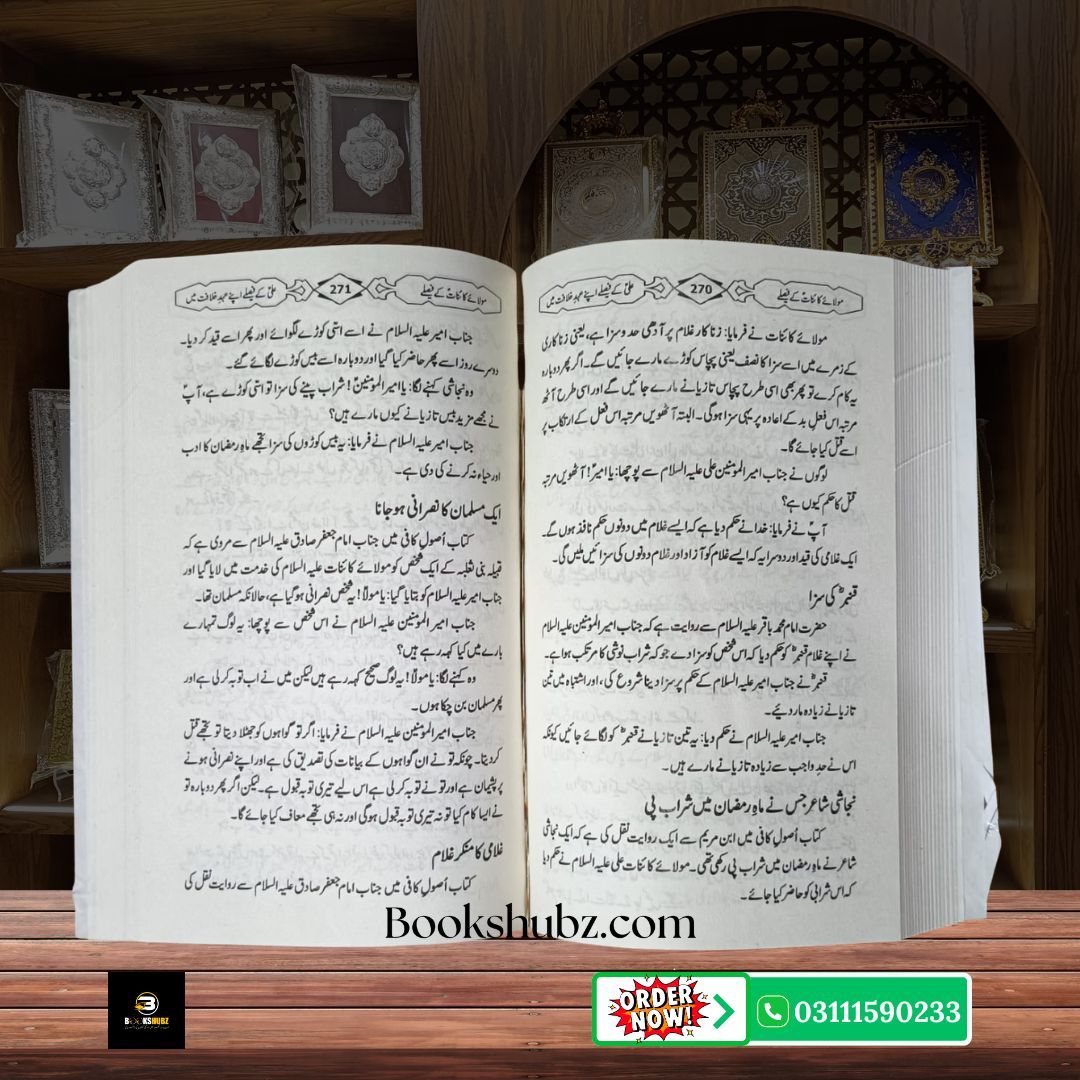 مولائے کائناتؑ کے فیصلے
270
علیؑ کے فیصلے اپنے عہدِ خلافت میں
مولائے کائنات نے فرمایا: زنا کار غلام پر آدھی حد و سزا ہے، یعنی زنا کاری
کے زمرے میں اسے سزا کا نصف یعنی پچاس کوڑے مارے جائیں گے۔ اگر پھر دوبارہ
یہ کام کرے تو پھر بھی اسی طرح پچاس تازیانے مارے جائیں گے اور اسی طرح آٹھ
مرتبہ اس فعلِ بد کے اعادہ پر یہی سزا ہوگی۔ البتہ آٹھویں مرتبہ اس فعل کے ارتکاب پر
اسے قتل کیا جائے گا۔
لوگوں نے جناب امیر المومنین علی علیہ السلام سے پوچھا: یا امیرؑ! آٹھویں مرتبہ
قتل کا حکم کیوں ہے؟
آپؑ نے فرمایا: خدا نے حکم دیا ہے کہ ایسے غلام میں دونوں حکم نافذ ہوں گے۔
ایک غلامی کی قید اور دوسرا یہ کہ ایسے غلام کو آزاد اور غلام دونوں کی سزائیں ملیں گی۔
قنبرؓ کی سزا
حضرت امام محمد باقر علیہ السلام سے روایت ہے کہ جناب امیر المومنین علیہ السلام
نے اپنے غلام قنبرؓ کو حکم دیا کہ اس شخص کو سزا دے جو کہ شراب نوشی کا مرتکب ہوا ہے۔
قنبرؓ نے جناب امیر علیہ السلام کے حکم پر سزا دینا شروع کی، اور اشتباہ میں تین
تازیانے زیادہ مار دیئے۔
جناب امیر علیہ السلام نے حکم دیا: یہ تین تازیانے قنبرؓ کو لگائے جائیں کیونکہ
اس نے حدِ واجب سے زیادہ تازیانے مارے ہیں۔
نجاشی شاعر جس نے ماہِ رمضان میں شراب پی
کتاب اُصولِ کافی میں ابن مریم سے ایک روایت نقل کی ہے کہ ایک نجاشی
شاعر نے ماہِ رمضان میں شراب پی رکھی تھی۔ مولائے کائنات علی علیہ السلام نے حکم دیا
کہ اس شرابی کو حاضر کیا جائے۔
مولائے کائناتؑ کے فیصلے
271
علیؑ کے فیصلے اپنے عہدِ خلافت میں
جناب امیر علیہ السلام نے اسے اسّی کوڑے لگوائے اور پھر اسے قید کر دیا۔
دوسرے روز اسے پھر حاضر کیا گیا اور دوبارہ اسے بیس کوڑے لگائے گئے۔
وہ نجاشی کہنے لگا: یا امیر المومنینؑ! شراب پینے کی سزا تو اسّی کوڑے ہے، آپؑ
نے مجھے مزید بیس تازیانے کیوں مارے ہیں؟
جناب امیر علیہ السلام نے فرمایا: یہ بیس کوڑوں کی سزا تجھے ماہِ رمضان کا ادب
اور حیاء نہ کرنے کی دی ہے۔
ایک مسلمان کا نصرانی ہو جانا
کتاب اُصولِ کافی میں جناب امام جعفر صادق علیہ السلام سے مروی ہے کہ
قبیلہ بنی ثعلبہ کے ایک شخص کو مولائے کائنات علیہ السلام کی خدمت میں لایا گیا اور
جناب امیر علیہ السلام کو بتایا گیا: یا مولاؑ! یہ شخص نصرانی ہو گیا ہے، حالانکہ مسلمان تھا۔
جناب امیر المومنین علیہ السلام نے اس شخص سے پوچھا: یہ لوگ تمہارے
بارے میں کیا کہہ رہے ہیں؟
وہ کہنے لگا: یا مولاؑ! یہ لوگ صحیح کہہ رہے ہیں لیکن میں نے اب توبہ کر لی ہے اور
پھر مسلمان بن چکا ہوں۔
جناب امیر المومنین علیہ السلام نے فرمایا: اگر تو گواہوں کو جھٹلا دیتا تو تجھے قتل
کر دیتا۔ چونکہ تو نے ان گواہوں کے بیانات کی تصدیق کی ہے اور اپنے نصرانی ہونے
پر پشیمان ہے اور تو نے توبہ کر لی ہے اس لیے تیری توبہ قبول ہے۔ لیکن اگر پھر دوبارہ تو
نے ایسا کام کیا تو نہ تیری توبہ قبول ہوگی اور نہ ہی تجھے معاف کیا جائے گا۔
غلامی کا منکر غلام
کتاب اُصولِ کافی میں جناب امام جعفر صادق علیہ السلام سے روایت نقل کی
Bookshubz.com
BOOKSHUBZ
ORDER
NOW!
03111590233